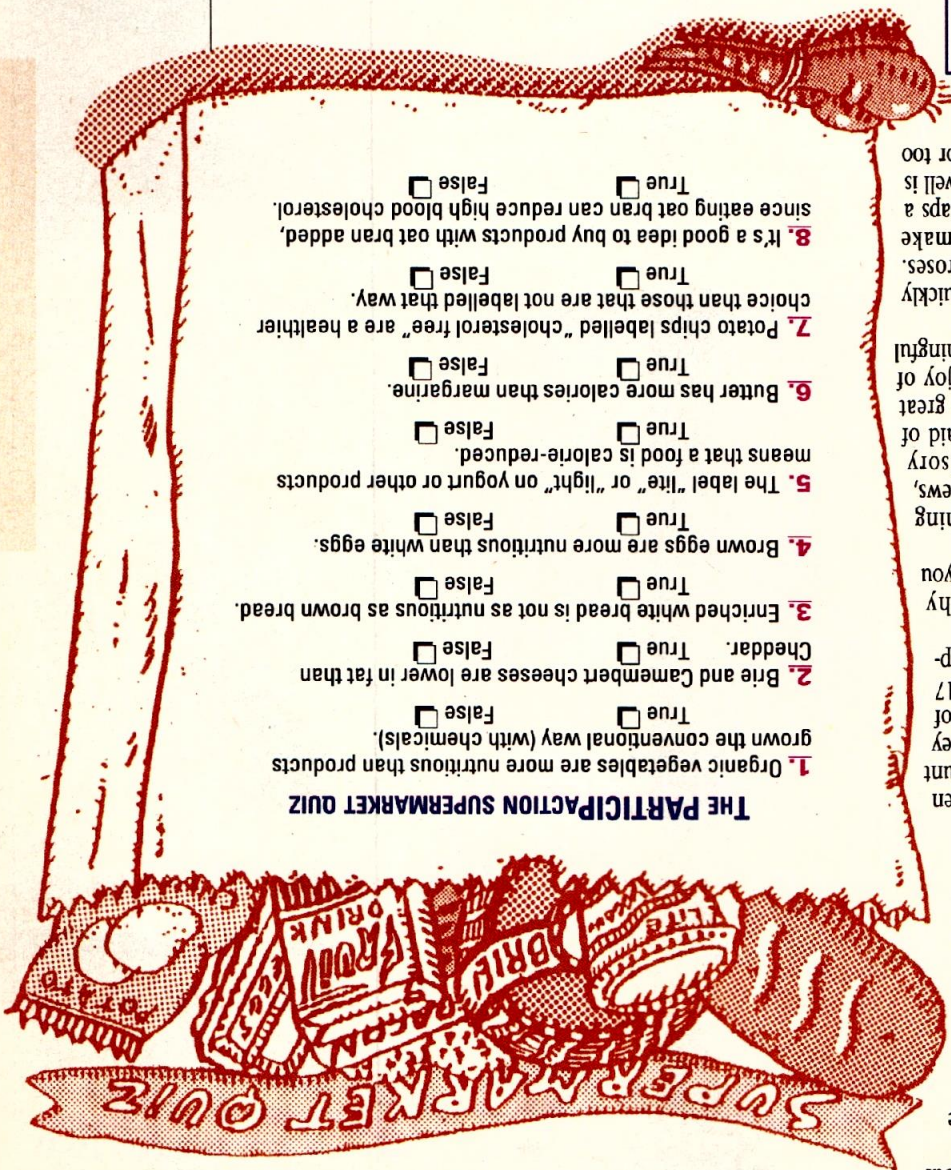 SUPERMARKET QUIZ
LITE
BRIE
DRINK
THE PARTICIPACTION SUPERMARKET QUIZ
1. Organic vegetables are more nutritious than products
grown the conventional way (with chemicals).
True False
2. Brie and Camembert cheeses are lower in fat than
Cheddar. True False
3. Enriched white bread is not as nutritious as brown bread.
True False
4. Brown eggs are more nutritious than white eggs.
True False
5. The label "lite" or "light" on yogurt or other products
means that a food is calorie-reduced.
True False
6. Butter has more calories than margarine.
True False
7. Potato chips labelled "cholesterol free" are a healthier
choice than those that are not labelled that way.
True False
8. It's a good idea to buy products with oat bran added,
since eating oat bran can reduce high blood cholesterol.
True False
of
17
you
of
great
joy of
make
aps a
well is
or too